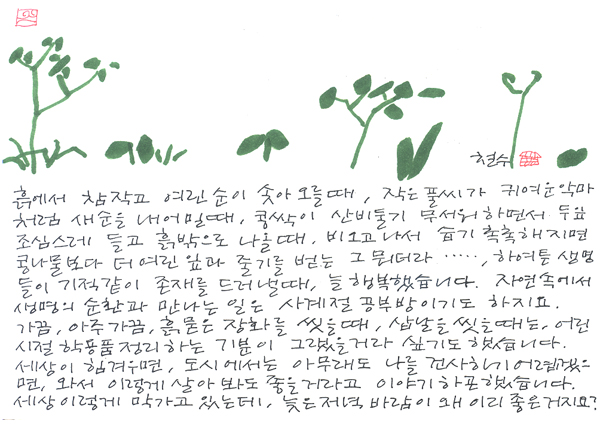 현수
흙에서 참 작고 여린 순이 솟아 오를때, 작은 풀씨가 귀여운 악마
처럼 새순을 내어밀때, 콩싹이 산비둘기 무서워 하면서 두잎
조심스레 들고 흙밖으로 나올때, 비오고나서 습기 촉촉해지면
콩나물보다 더 여린 잎과 줄기를 벋는 그 뭐더라 ……, 하여튼 생명
들이 기적같이 존재를 드러낼때, 늘 행복했습니다. 자연속에서
생명의 순환과 만나는 일은 사계절 공부방이기도 하지요.
가끔, 아주 가끔, 흙묻은 장화를 씻을때, 삽날을 씻을때는, 어린
시절 학용품 정리 하는 기분이 그랬을거라 싶기도 했습니다.
세상이 힘겨우면, 도시에서는 아무래도 나를 건사하기 어렵겠으
면, 와서 이렇게 살아 봐도 좋을거라고 이야기 하고팠습니다.
세상 이렇게 막가고 있는데, 늦은 저녁 바람이 왜 이리 좋은거지요?